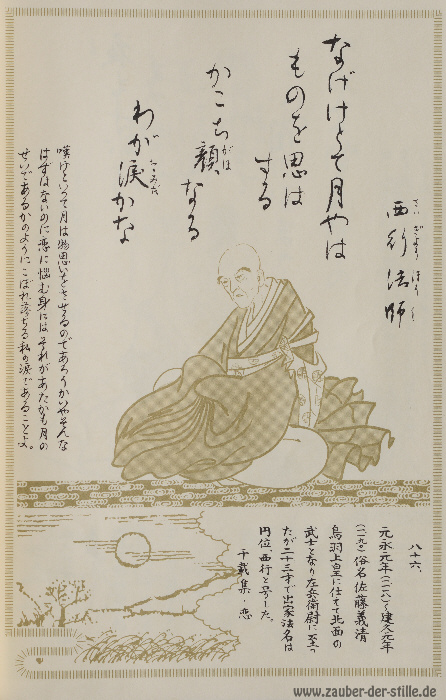 西行法師
さいぎょうほうし
なげけとて月やは
ものを思は
する
かこち顔なる
がほ
わが涙かな
なみだ
嘆けといって月は物思いをさせるのであろうかいやそんな
はずはないのに恋に悩む身にはそれがあたかも月の
せいであるかのようにこぼれ落ちる私の涙であることよ。
八十六、
元永元年(一一一八)〜建久元年
(一一九〇)俗名佐藤義清
鳥羽上皇に仕えて北面の
武士となり左兵衛尉に至っ
たが二十三才で出家法名は
円位西行と号した。
千載集 恋
www.zauber-der-stille.de